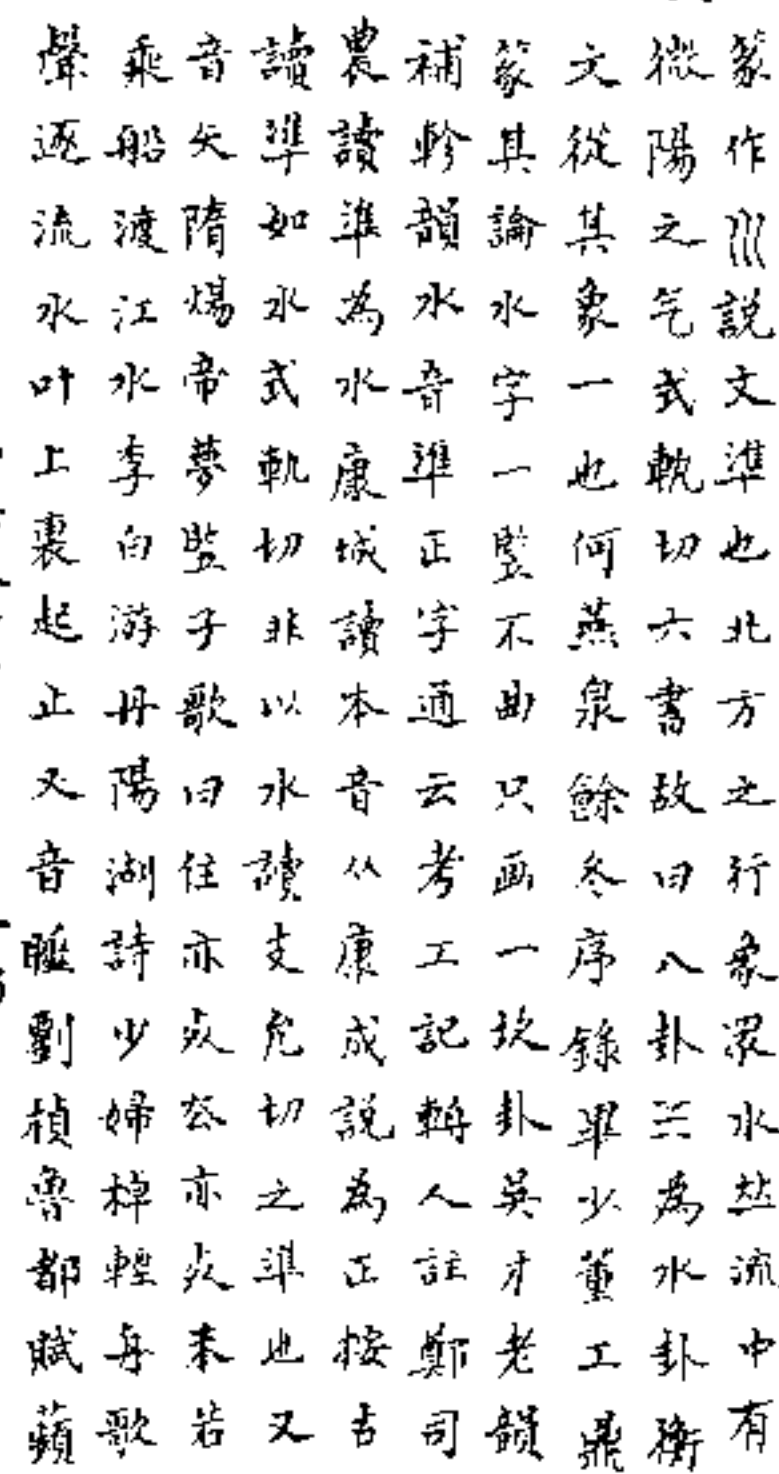 篆作巛説文準也北方之行象眾水𠀤流中有
微陽之气式軌切六書故曰八卦☵為水卦衡
文從其象一也何燕泉餘冬序錄畢少董工鼎
篆其論水字一豎不曲只画一坎卦吴才老韻
補軫韻水音準正字通云考工記輈人註鄭司
農讀準為水康城讀本音从康成說為正按古
讀準如水式軌切非以水讀支允切之準也又
音矢隋煬帝夢豎子歌曰住亦死去亦死未若
乘船渡江水李白游丹陽湖詩少婦棹輕舟歌
聲逐流水叶上裏起止又音腄劉楨魯都賦蘋